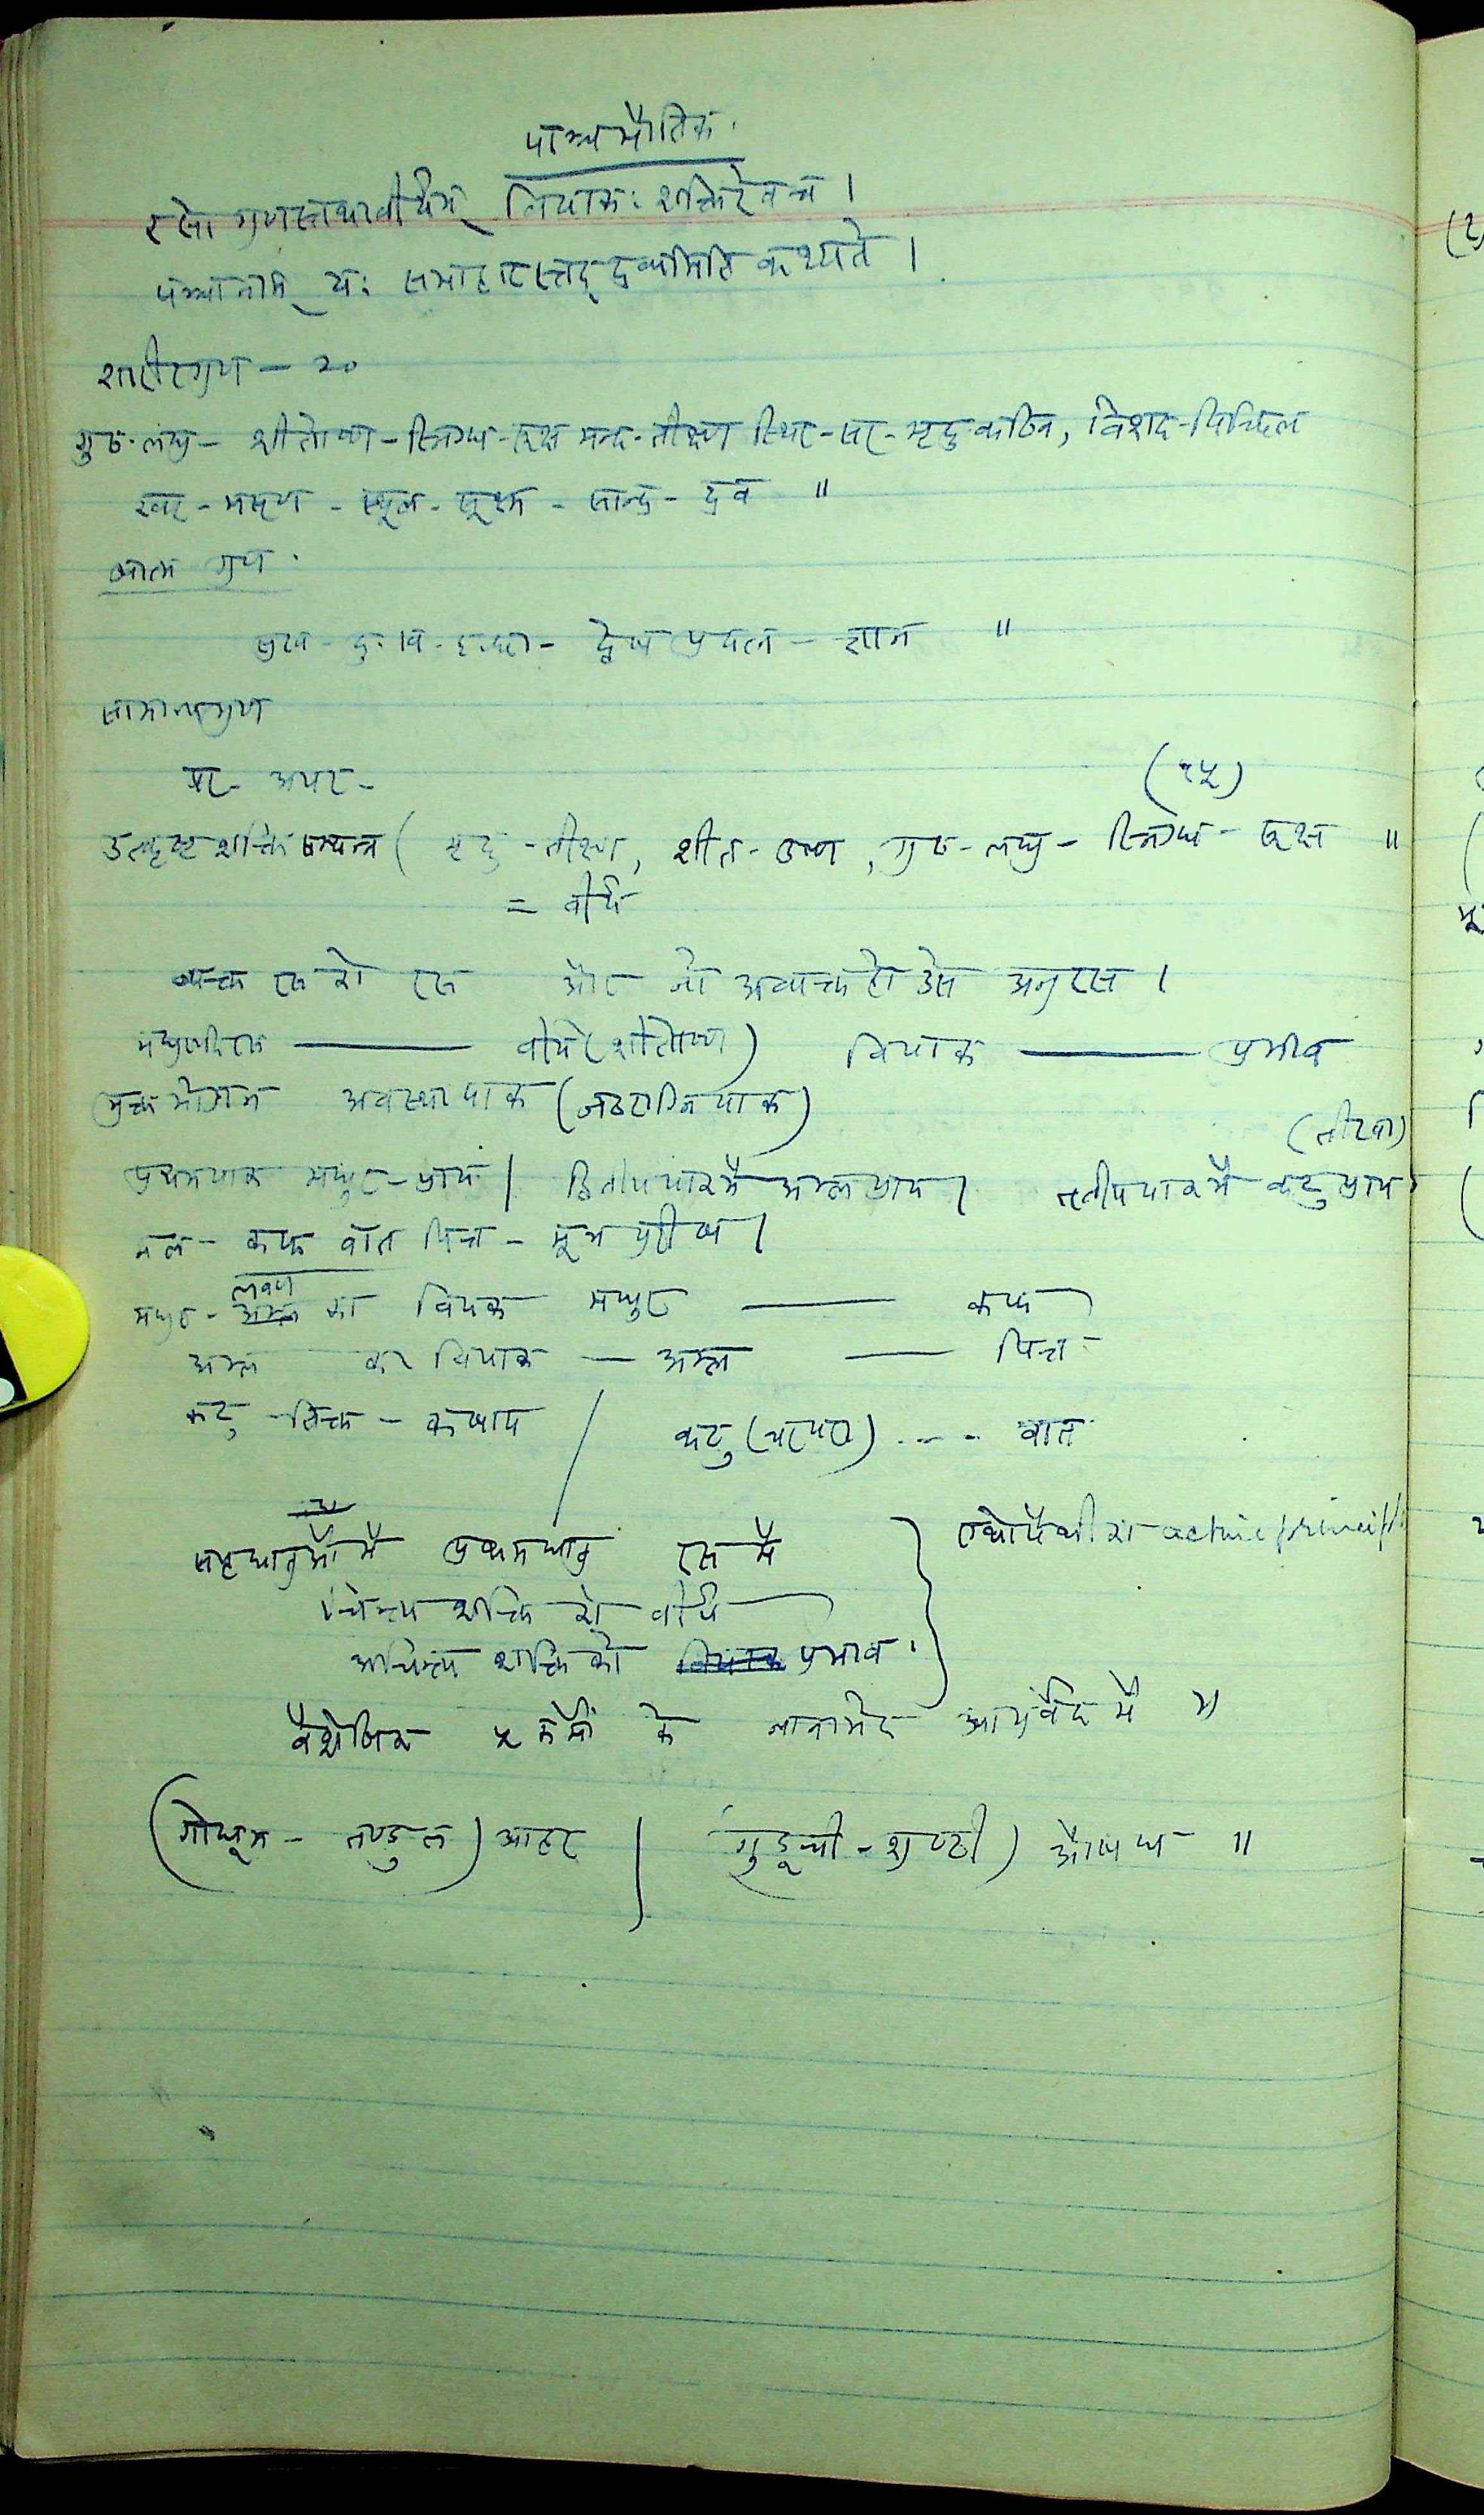 पाञ्चभौतिक.
रसो गुणस्तथा वीर्यम् विपाकः शक्तिरेव च ।
पञ्चानाम् यः समाहारस्तद् द्रव्यमिति कथ्यते ।
शारीरगुण - २०
गुरु-लघु - शीतोष्ण - स्निग्ध-रूक्ष मन्द-तीक्ष्ण स्थिर-सर-मृदु-कठिन, विशद-पिच्छिल
खर - मसृण - स्थूल-सूक्ष्म - सान्द्र - द्रव ॥
आत्म गुण .
सुख - दुःख - इच्छा - द्वेष प्रयत्न - ज्ञान ॥
सामान्यगुण
पर - अपर -
(१५)
उत्कृष्ट शक्ति सम्पन्न ( मृदु - तीक्ष्ण, शीत-उष्ण, गुरु-लघु - स्निग्ध - रूक्ष ॥
= वीर्य
व्यक्त रस को रस और जो अव्यक्त हो उसे अनुरस ।
मधुरादिरस —— वीर्य (शीतोष्ण) विपाक —— प्रभाव
भुक्त भोजन अवस्थापाक (जठराग्निपाक)
(तीखा)
प्रथमपाक मधुर-प्राय | द्वितीयपाकमें अम्लप्राय | तृतीयपाकमें कटुप्राय
मल - कफ वात पित्त - मूत्र पुरीष |
मधुर - लवण का विपाक मधुर —— कफ
अम्ल का विपाक — अम्ल —— पित्त
कटु - तिक्त - कषाय / कटु (चरपरा) ---- वात
सप्तधातुओंमें प्रथमधातु रस में } एलोपैथी का active principl
चिन्त्य शक्ति को वीर्य
अचिन्त्य शक्ति को प्रभाव .
वैशेषिक ५ कर्मों के नानाभेद आयुर्वेद में ॥
(गोधूम - तण्डुल) आहार | (गुडूची - शुण्ठी) औषध ॥